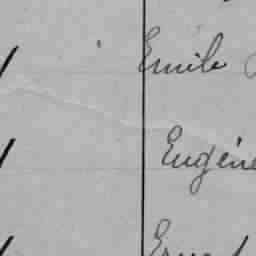 Emile
Eugène